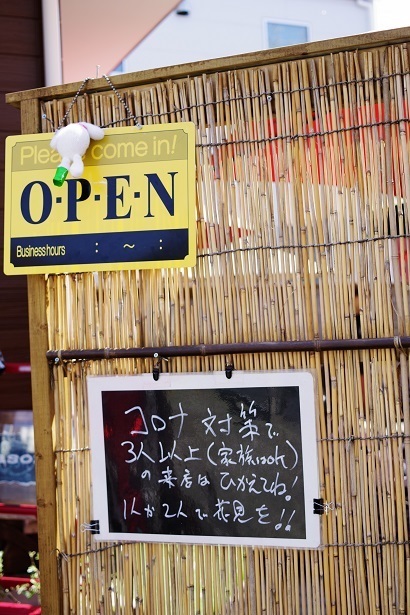 Please come in!
O-P-E-N
Business hours : ~ :
コロナ対策で
3人以上(家族はok)
の来店はひかえてね!
1人か2人で花見を!!